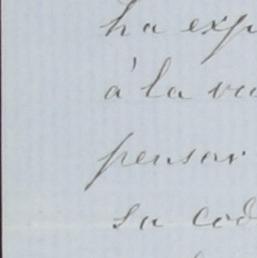 ha exp
à la vu
pensar
su cod